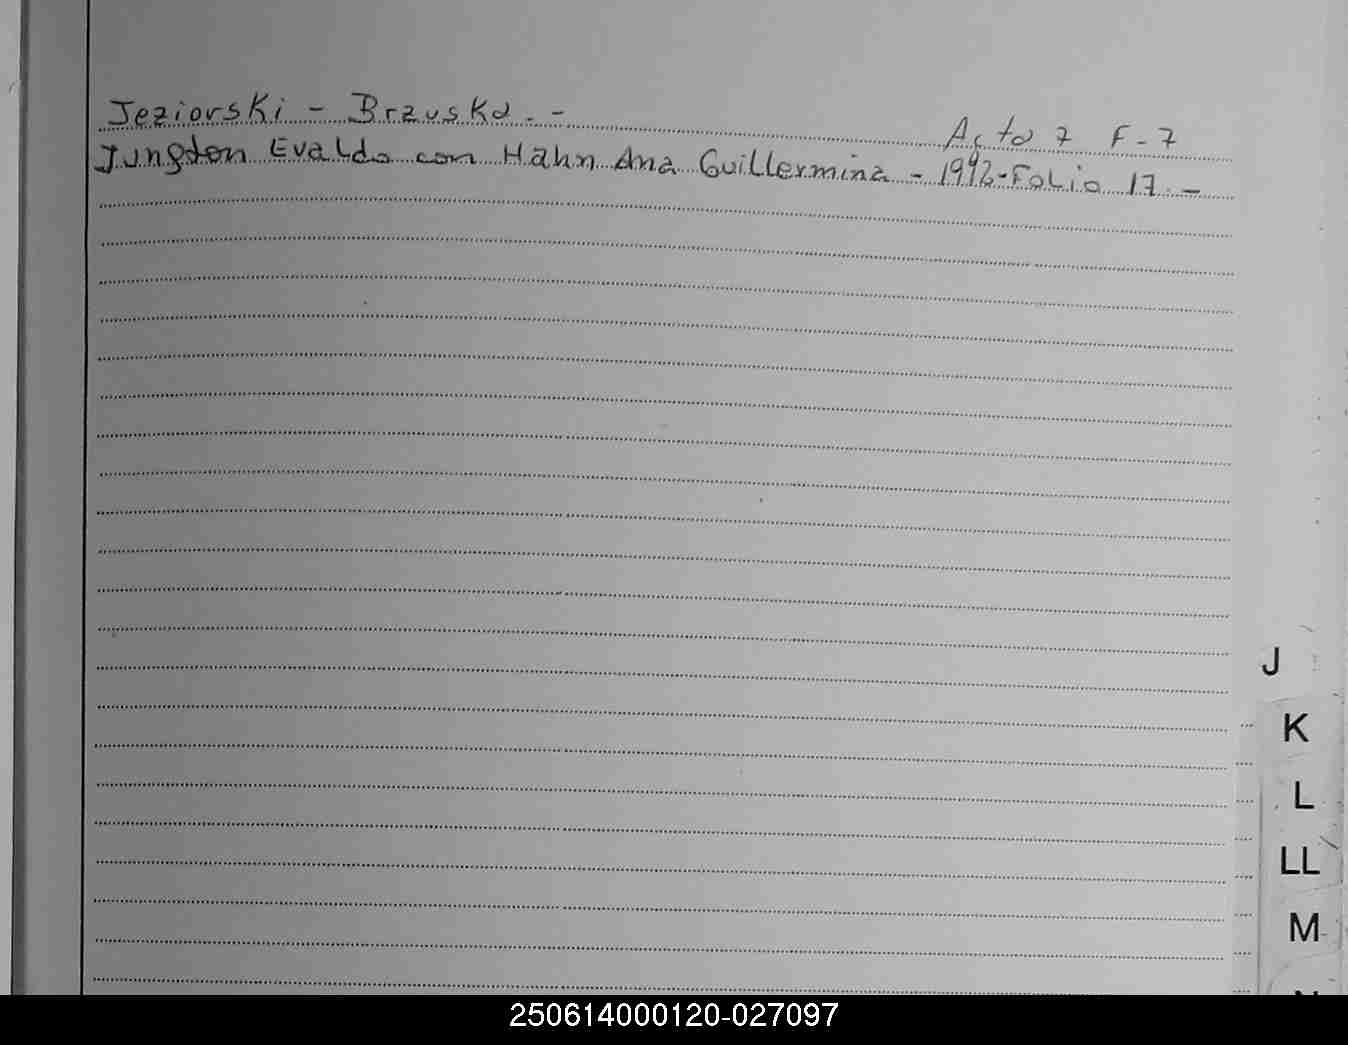 Jeziorski - Brzuska. - Acta 7 F-7
Jungton Evaldo con Hahn Ana Guillermina - 1992-Folio 17. -
J
K
L
LL
M
250614000120-027097